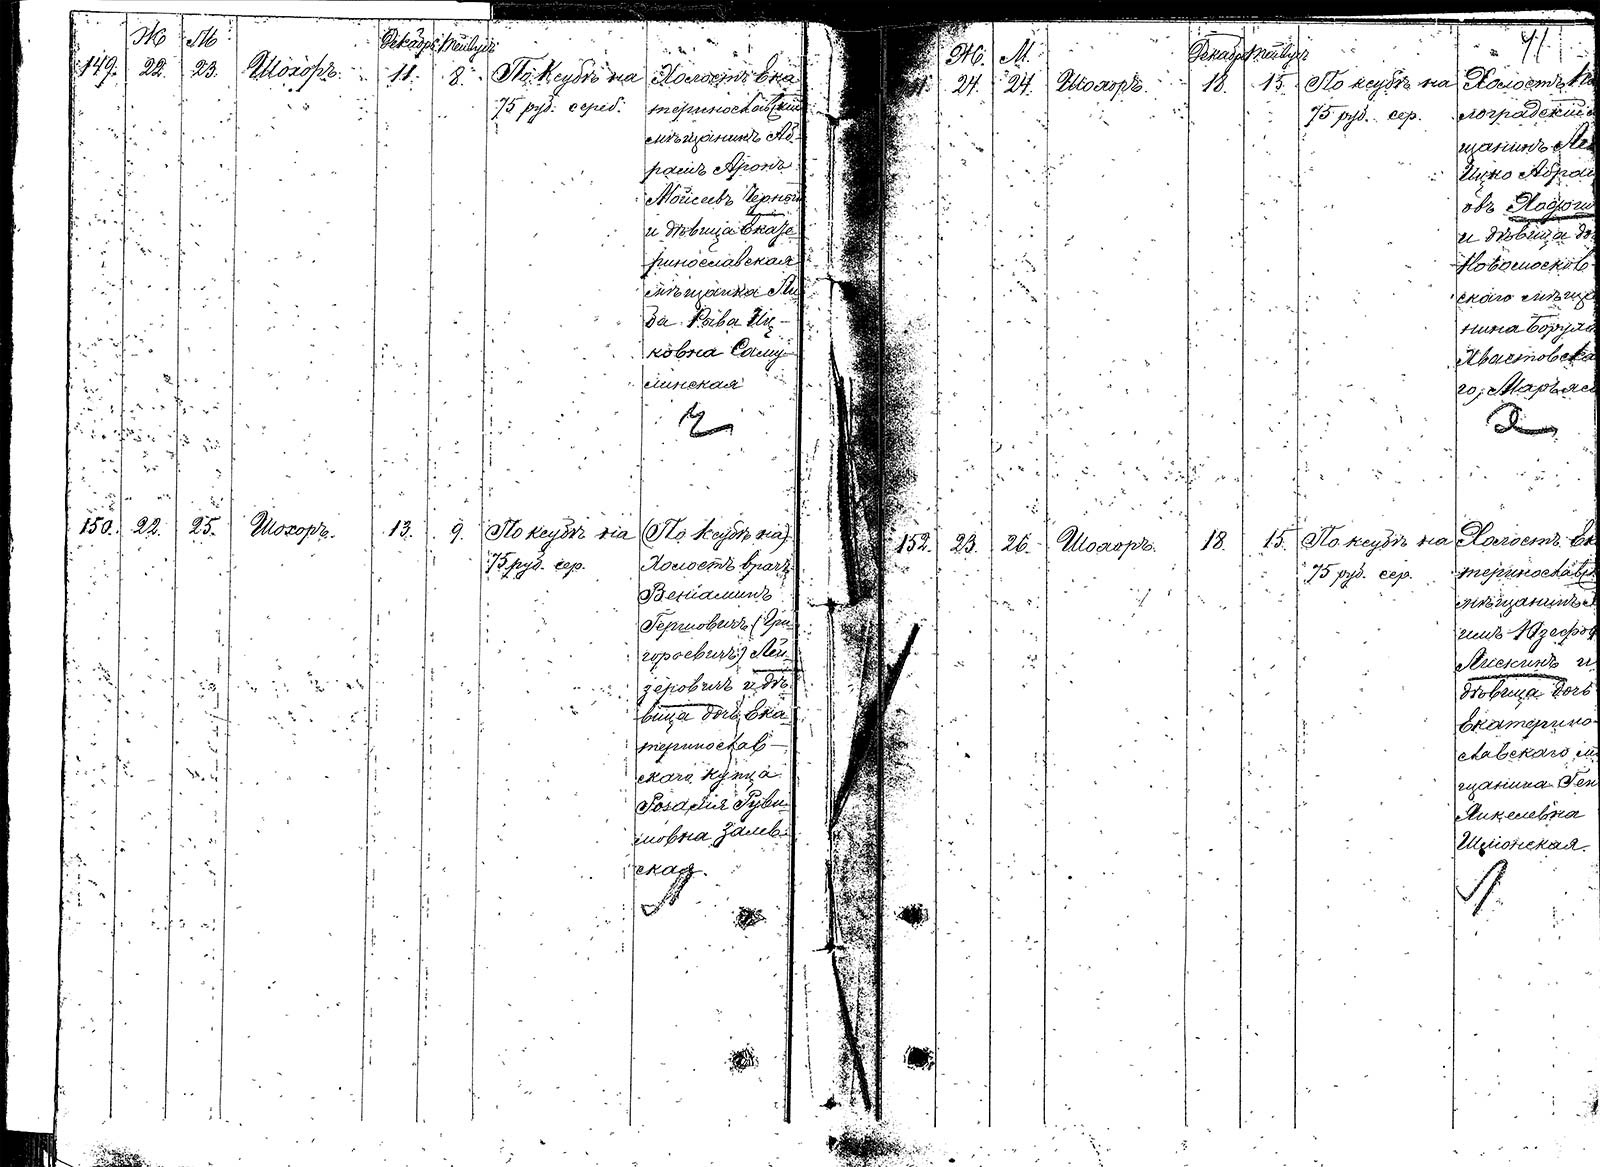 Ж М Декабрь Тейвусъ
149. 22. 23. Шохоръ. 11. 8. По Ксубѣ на
75 руб. сереб.
Холостъ Ека
теринославскій
мѣщанинъ Аб-
рамъ Аронъ
Мойсеевъ Черной
и дѣвица Екате
ринославская
мѣщанка Ли
ба Рыва Иц-
ковна Саму-
линская
150. 22. 25. Шохоръ. 13. 9. По ксубѣ на
75 руб. сер.
(По ксубѣ на)
Холостъ врачъ
Веніаминъ
Гершовичъ (Гри
горьевичъ) Лей-
зеровичъ и дѣ
вица дочь Ека
теринослав-
скаго купца
Розалія Руви
мовна Залев-
ская.
41
Ж. М. Декабрь Тейвусъ
24. 24. Шохоръ. 18. 15. По ксубѣ на
75 руб. сер.
Холостъ Па
влоградскій
щанинъ
Ицко Абрам
овъ
и дѣвица до
Новомосков-
скаго мѣща
нина Борух
Хвастовска
го,
152. 23. 26. Шохоръ. 18. 15. По ксубѣ на
75 руб. сер.
Холостъ Ек
теринослав
мѣщанинъ
Юзефов
Лискинъ и
дѣвица дочь
Екатерино-
славскаго мѣ
щанина Ген
Янкелевна
Шмонская.